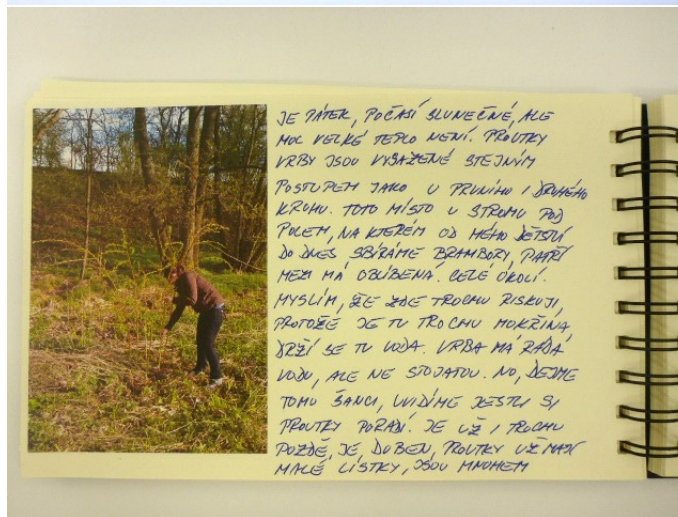 JE PÁTEK, POČASÍ SLUNEČNÉ, ALE
MOC VELKÉ TEPLO NENÍ. PROUTKY
VRBY JSOU VYSAZENÉ STEJNÝM
POSTUPEM JAKO U PRVNÍHO I DRUHÉHO
KRUHU. TOTO MÍSTO U STROMU POD
POLEM, NA KTERÉM OD MÉHO DĚTSTVÍ
DO DNES SBÍRÁME BRAMBORY, PATŘÍ
MEZI MÁ OBLÍBENÁ. CELÉ OKOLÍ.
MYSLÍM, ŽE ZDE TROCHU RISKUJI,
PROTOŽE JE TU TROCHU MOKŘINA,
DRŽÍ SE TU VODA. VRBA MÁ RÁDA
VODU, ALE NE STOJATOU. NO, DEJME
TOMU ŠANCI, UVIDÍME JESTLI SI
PROUTKY PORADÍ. JE UŽ I TROCHU
POZDĚ, JE, DUBEN, PROUTKY UŽ MAJÍ
MALÉ LÍSTKY, JSOU MNOHEM